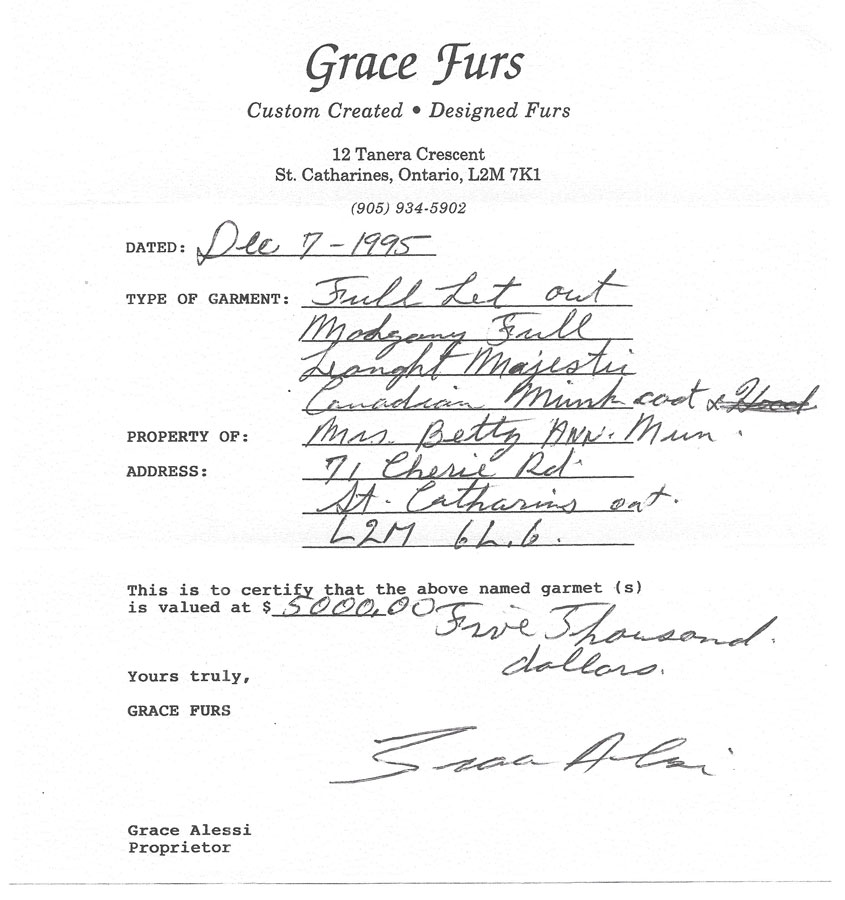 Grace Furs
Custom Created • Designed Furs
12 Tanera Crescent
St. Catharines, Ontario, L2M 7K1
(905) 934-5902
DATED: Dec 7 - 1995
TYPE OF GARMENT: Full Let out
Mohgany Full
Leanght Majestic
Canadian Mink coat & Hood
PROPERTY OF: Mrs. Betty Ann. Mun.
ADDRESS: 71 Cherie Rd.
St. Catharins ont.
L2M 6L.6.
This is to certify that the above named garmet (s)
is valued at $ 5000,00 Five Thousand.
dollars.
Yours truly,
GRACE FURS
Grace Alessi
Proprietor